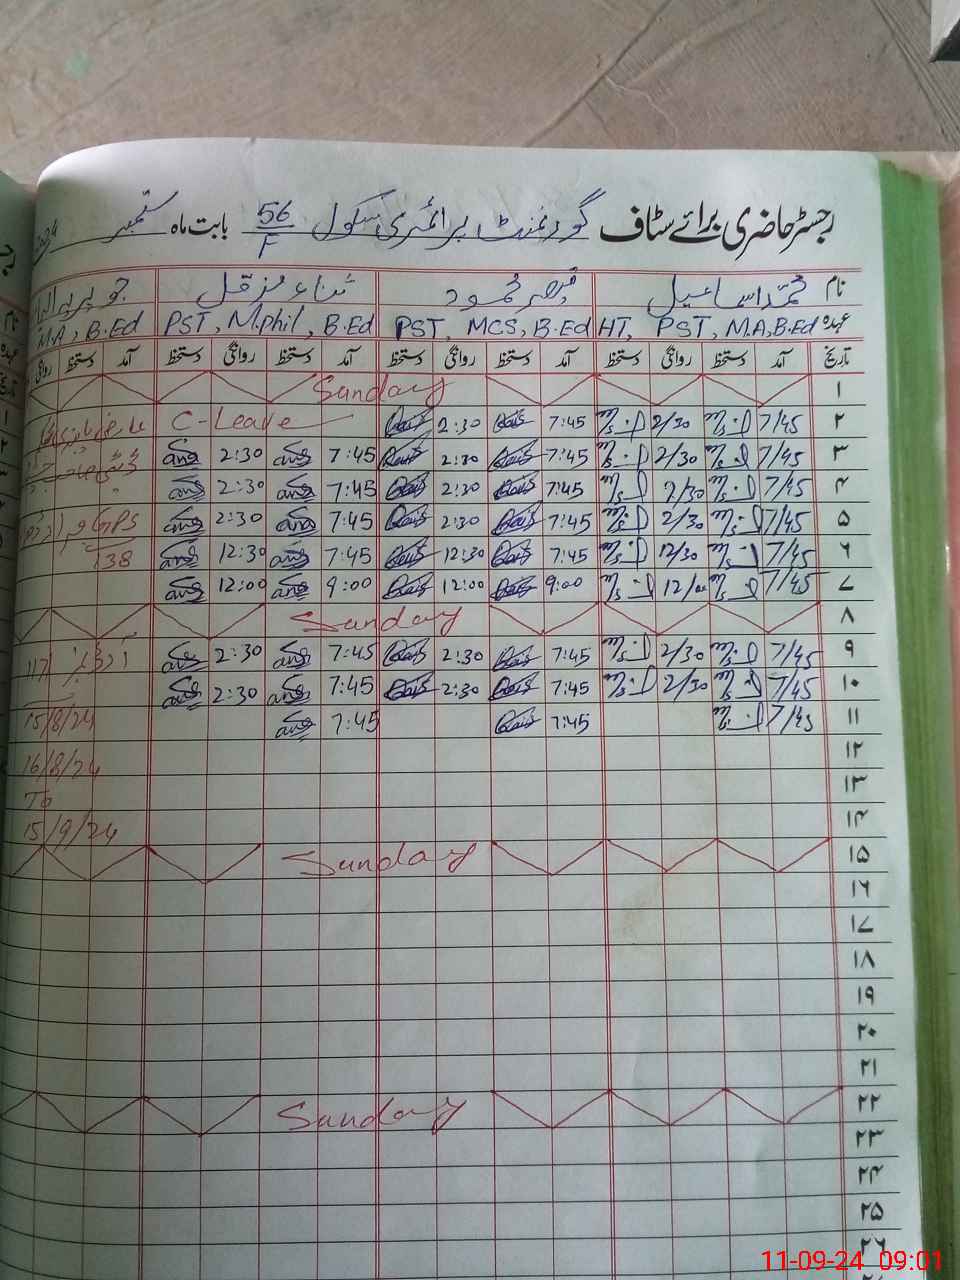 رجسٹر حاضری برائے سٹاف گورنمنٹ پرائمری سکول 56/F بابت ماہ ستمبر
نام محمد اسماعیل قیصر محمود ثناء مزمل
عہدہ HT, PST, M.A, B.Ed PST, MCS, B.Ed PST, Mphil, B.Ed M.A, B.Ed
تاریخ آمد دستخط روانگی دستخط آمد دستخط روانگی دستخط آمد دستخط روانگی دستخط آمد دستخط روانگی
۱ Sunday
۲ 7/45 2/30 7:45 2:30 C-Leave
۳ 7/45 2/30 7:45 2:30 7:45 2:30
۴ 7/45 2/30 7:45 2:30 7:45 2:30
۵ 7/45 2/30 7:45 2:30 7:45 2:30 GPS
۶ 7/45 12/30 7:45 12:30 7:45 12:30 138
۷ 7/45 12/00 9:00 12:00 9:00 12:00
۸ Sunday
۹ 7/45 2/30 7:45 2:30 7:45 2:30 آرڈر نمبر 117
۱۰ 7/45 2/30 7:45 2:30 7:45 2:30
۱۱ 7/45 7:45 7:45 15/8/24
۱۲ 16/8/24
۱۳ To
۱۴ 15/9/24
۱۵ Sunday
۱۶
۱۷
۱۸
۱۹
۲۰
۲۱
۲۲ Sunday
۲۳
۲۴
۲۵
۲۶
11-09-24 09:01